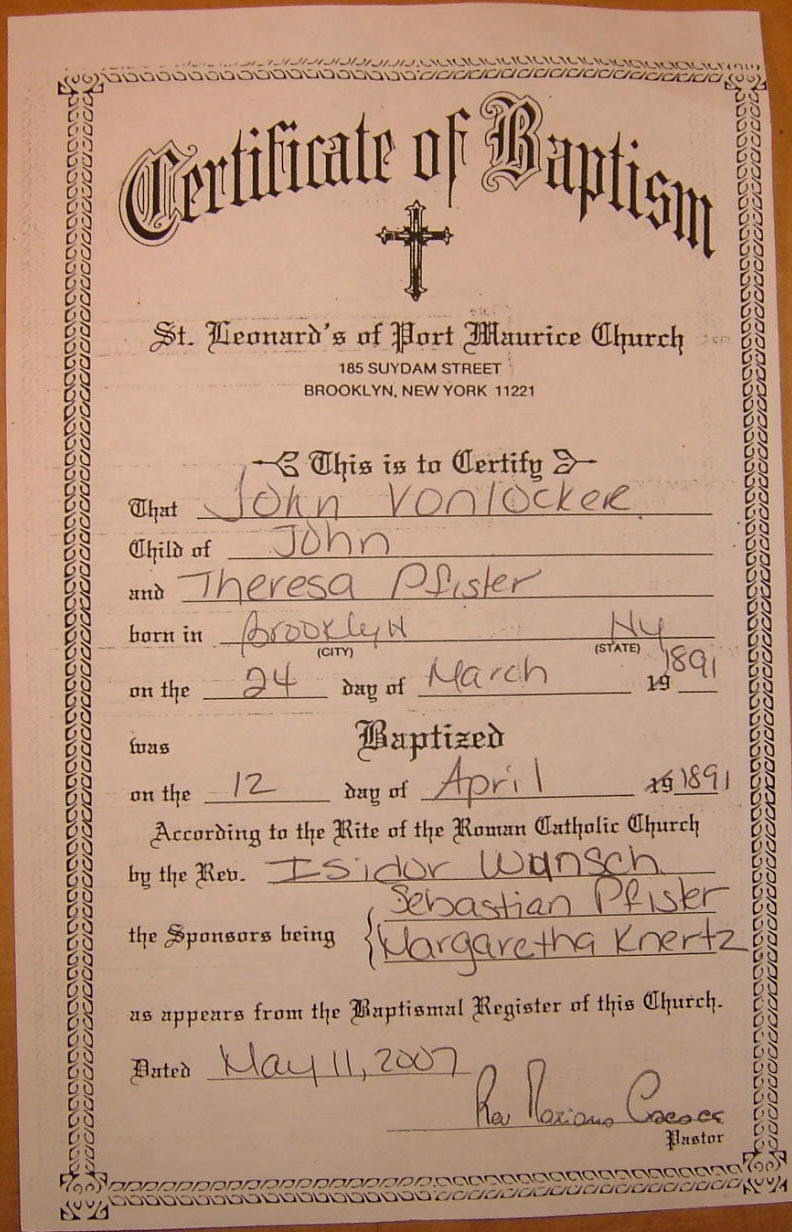 Certificate of Baptism
St. Leonard's of Port Maurice Church
185 SUYDAM STREET
BROOKLYN, NEW YORK 11221
This is to Certify
That John Vonlocker
Child of John
and Theresa Pfister
born in Brooklyn NY
(CITY) (STATE)
on the 24 day of March 19 1891
was Baptized
on the 12 day of April 19 1891
According to the Rite of the Roman Catholic Church
by the Rev. Isidor Wunsch
Sebastian Pfister
the Sponsors being
Margaretha Knertz
as appears from the Baptismal Register of this Church.
Dated May 11, 2007
Rev Mariano
Pastor